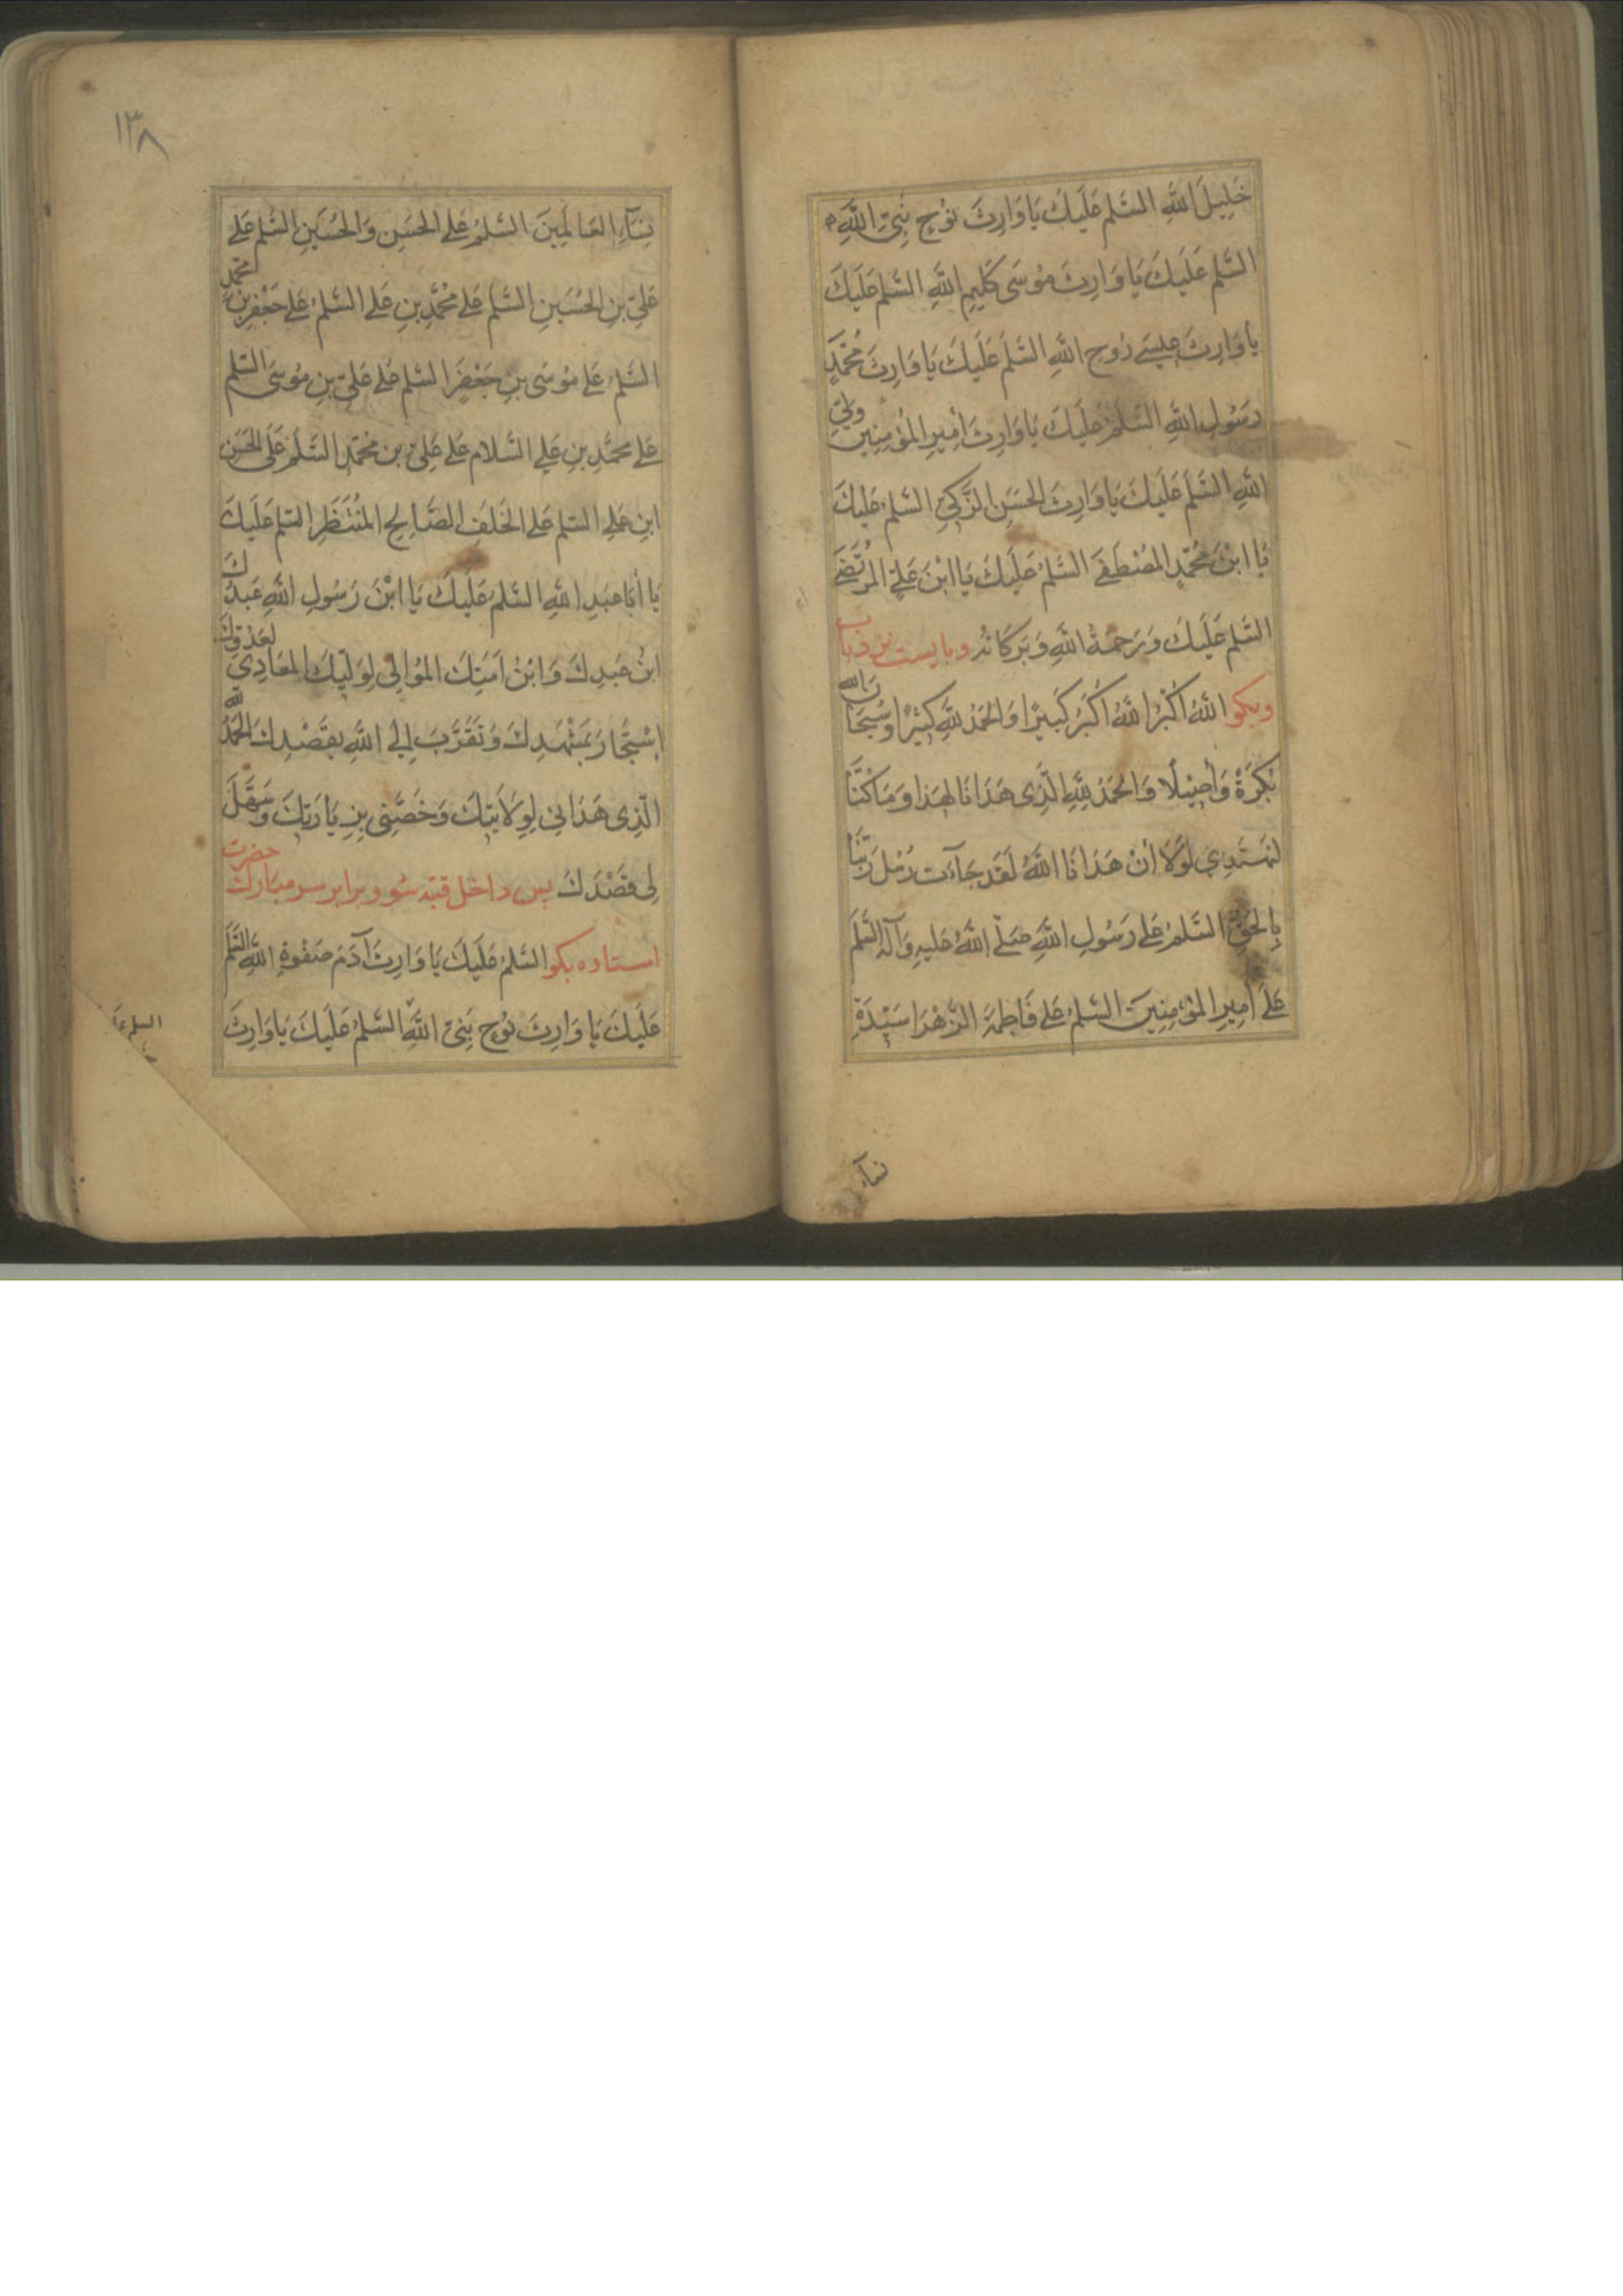 خَلِيلَ اللّٰهِ السَّلمُ عَلَيكَ يَا وَارِثَ نوُحٍ نَبِىِّ اللّٰهِ
السَّلم عَلَيكَ يَا وَارِثَ موُسَى كَلِيمِ اللّٰهِ السَّلم عَلَيكَ
يا وَارِثَ عيسَے رُوحِ اللّٰهِ السَّلمُ عَلَيكَ يَا وَارِثَ مُحَمَّدٍ
رَسُولِ اللّٰهِ السَّلمُ عَلَيكَ يَا وَارِثَ أَمِيرِ المؤُمِنِينَ وَلِىِّ
اللّٰهِ السَّلمُ عَلَيكَ يا وَارِثَ الحَسَنِ الزَّكِىِّ السَّلمُ عَليكَ
يَا ابْنَ مُحَمَّدٍ المُصْطَفَے السَّلمُ عَلَيكَ يَا ابْنَ عَلِىٍّ المُرْتَضَے
السَّلم عَلَيكَ وَرَحمَةُ اللّٰهِ وَبَرَكَاتُهُ وبايست نزد باب
وبكو اللّٰهُ اكْبَرُ اللّٰهُ اكْبَرُ كَبيرًا وَالحَمدُ لِلّٰهِ كَثيرًا وسُبحَانَ الله
بُكرَةً وَأصِيلًا وَالحَمدُ لِلّٰهِ الَّذِى هَدَانَا لِهَذا وَمَا كُنَّا
لنَهتَدِىَ لَولَا أنْ هَدَانَا اللّٰهُ لَقَد جَآءَت رُسُلُ رَبِّنَا
بِالحَقِّ السَّلمُ عَلے رَسُولِ اللّٰهِ صَلّے اللّٰهُ عَليهِ وَآلِهِ السَّلمُ
عَلَے أَمِيرِ المؤُمِنِينَ السَّلمُ عَلے فَاطِمَةَ الزَّهرَا سَيِّدَةِ
نسآء
١٣٨
نِسَآءِ العَالَمِينَ السَّلمُ عَلے الحَسَنِ وَالحُسَينِ السَّلم عَلے
عَلِىِّ بنِ الحُسَينِ السَّلمُ عَلے مُحَمَّدِ بنِ عَلے السَّلمُ عَلے جَعْفَرِ بنِ مُحَمَّدٍ
السَّلمُ عَلے مُوسَى بنِ جَعْفَرٍ السَّلم عَلے عَلِىِّ بنِ مُوسَى السَّلم
عَلے محمَّدِ بنِ عَلےِ السَّلام عَلے عَلِىِّ بن محَمَّدٍ السَّلمُ عَلَى الحَسَنِ
ابنِ عَلےِ السَّلم عَلے الخَلَفِ الصَّالِحِ المُنْتَظَرِ السَّلم عَلَيكَ
يَا أبَا عَبدِ اللّٰهِ السَّلم عَلَيكَ يَا ابْنَ رَسُولِ اللّٰهِ عَبدُكَ
ابنُ عَبدِكَ وَابْنُ اَمَتِكَ المُوَالِى لِوَلِيِّكَ المعَادِى لِعَدُوِّكَ
اِستَجَارَ بمَشْهَدِكَ وَتَقَرَّبَ إِلَى اللّٰهِ بِقَصْدِكَ الحَمدُ لِلّٰهِ
الَّذِى هَدَانِى لِوِلَايَتِكَ وَخَصَّنِى بِزِيَارَتِكَ وَسَهَّلَ
لِى قَصْدَكَ پس داخل قبّه شو و برابر سر مبارك حضرت
استاده بكو السَّلمُ عَلَيكَ يَا وَارِثَ آدَمَ صَفْوَةِ اللّٰهِ السَّلمُ
عَلَيكَ يَا وَارِثَ نوُحٍ نَبِىِّ اللّٰهِ السَّلمُ عَلَيكَ يَا وَارِثَ